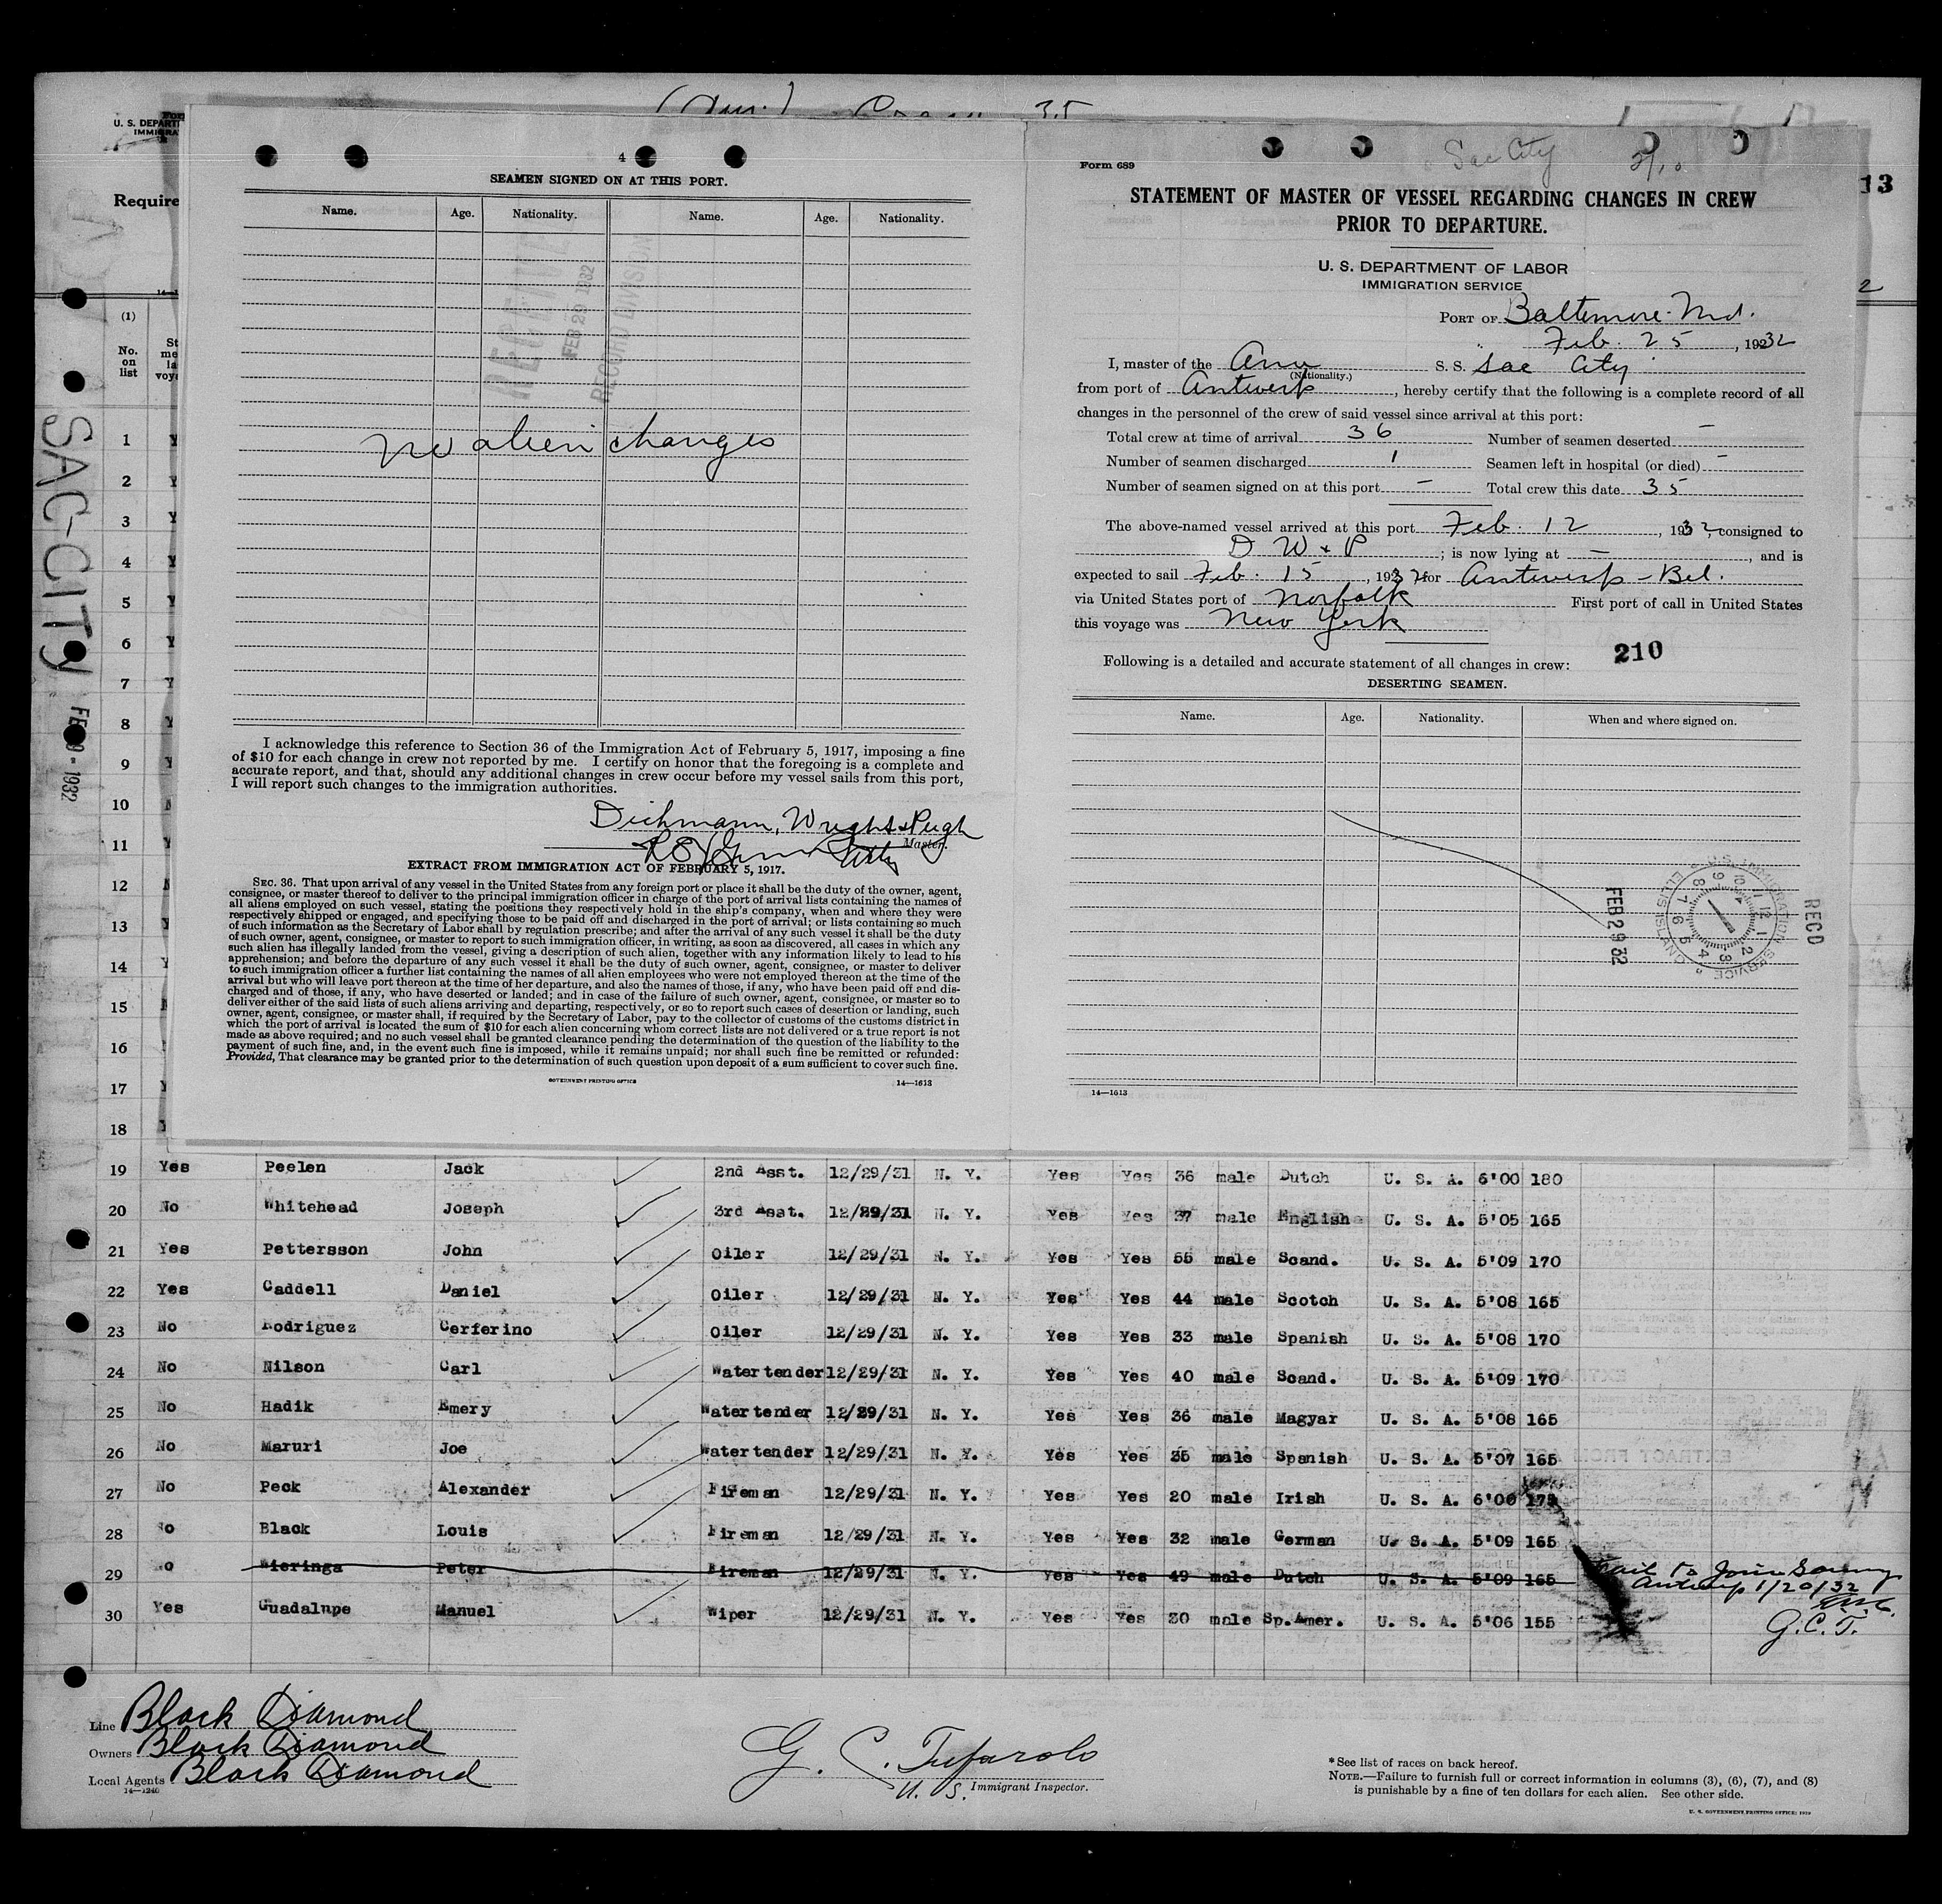 U. S. DEPART
IMMIGRA
Require
(1)
No.
on
list
13
2
SAC-CITY
1932
4
SEAMEN SIGNED ON AT THIS PORT.
Name. Age. Nationality. Name. Age. Nationality.
RECEIVED
FEB 29 1932
RECORD DIVISION
no alien changes
I acknowledge this reference to Section 36 of the Immigration Act of February 5, 1917, imposing a fine
of $10 for each change in crew not reported by me. I certify on honor that the foregoing is a complete and
accurate report, and that, should any additional changes in crew occur before my vessel sails from this port,
I will report such changes to the immigration authorities.
Dichmann, Wright & Pugh
Master.
EXTRACT FROM IMMIGRATION ACT OF FEBRUARY 5, 1917.
SEC. 36. That upon arrival of any vessel in the United States from any foreign port or place it shall be the duty of the owner, agent,
consignee, or master thereof to deliver to the principal immigration officer in charge of the port of arrival lists containing the names of
all aliens employed on such vessel, stating the positions they respectively hold in the ship's company, when and where they were
respectively shipped or engaged, and specifying those to be paid off and discharged in the port of arrival; or lists containing so much
of such information as the Secretary of Labor shall by regulation prescribe; and after the arrival of any such vessel it shall be the duty
of such owner, agent, consignee, or master to report to such immigration officer, in writing, as soon as discovered, all cases in which any
such alien has illegally landed from the vessel, giving a description of such alien, together with any information likely to lead to his
apprehension; and before the departure of any such vessel it shall be the duty of such owner, agent, consignee, or master to deliver
to such immigration officer a further list containing the names of all alien employees who were not employed thereon at the time of the
arrival but who will leave port thereon at the time of her departure, and also the names of those, if any, who have been paid off and dis-
charged and of those, if any, who have deserted or landed; and in case of the failure of such owner, agent, consignee, or master so to
deliver either of the said lists of such aliens arriving and departing, respectively, or so to report such cases of desertion or landing, such
owner, agent, consignee, or master shall, if required by the Secretary of Labor, pay to the collector of customs of the customs district in
which the port of arrival is located the sum of $10 for each alien concerning whom correct lists are not delivered or a true report is not
made as above required; and no such vessel shall be granted clearance pending the determination of the question of the liability to the
payment of such fine, and, in the event such fine is imposed, while it remains unpaid; nor shall such fine be remitted or refunded:
Provided, That clearance may be granted prior to the determination of such question upon deposit of a sum sufficient to cover such fine.
GOVERNMENT PRINTING OFFICE 14—1613
Form 689
Sac City
STATEMENT OF MASTER OF VESSEL REGARDING CHANGES IN CREW
PRIOR TO DEPARTURE.
U. S. DEPARTMENT OF LABOR
IMMIGRATION SERVICE
PORT OF Baltimore Md.
Feb. 25, 1932
I, master of the Am S. S. Sac City
(Nationality.)
from port of Antwerp, hereby certify that the following is a complete record of all
changes in the personnel of the crew of said vessel since arrival at this port:
Total crew at time of arrival 36 Number of seamen deserted –
Number of seamen discharged 1 Seamen left in hospital (or died) –
Number of seamen signed on at this port – Total crew this date 35
The above-named vessel arrived at this port Feb. 12, 1932, consigned to
D W & P; is now lying at –, and is
expected to sail Feb. 15, 1932 for Antwerp – Bel.
via United States port of Norfolk First port of call in United States
this voyage was New York
210
Following is a detailed and accurate statement of all changes in crew:
DESERTING SEAMEN.
Name. Age. Nationality. When and where signed on.
FEB 29 32
U.S. IMMIGRATION SERVICE
ELLIS ISLAND
RECD
14—1613
1
2
3
4
5
6
7
8
9
10
11
12
13
14
15
16
17
18
19 Yes Peelen Jack 2nd Asst. 12/29/31 N. Y. Yes Yes 36 male Dutch U. S. A. 6'00 180
20 No Whitehead Joseph 3rd Asst. 12/29/31 N. Y. Yes Yes 37 male English U. S. A. 5'05 165
21 Yes Pettersson John Oiler 12/29/31 N. Y. Yes Yes 55 male Scand. U. S. A. 5'09 170
22 Yes Caddell Daniel Oiler 12/29/31 N. Y. Yes Yes 44 male Scotch U. S. A. 5'08 165
23 No Rodriguez Cerferino Oiler 12/29/31 N. Y. Yes Yes 33 male Spanish U. S. A. 5'08 170
24 No Nilson Carl Watertender 12/29/31 N. Y. Yes Yes 40 male Scand. U. S. A. 5'09 170
25 No Hadik Emery Watertender 12/29/31 N. Y. Yes Yes 36 male Magyar U. S. A. 5'08 165
26 No Maruri Joe Watertender 12/29/31 N. Y. Yes Yes 35 male Spanish U. S. A. 5'07 165
27 No Peck Alexander Fireman 12/29/31 N. Y. Yes Yes 20 male Irish U. S. A. 6'00 175
28 No Black Louis Fireman 12/29/31 N. Y. Yes Yes 32 male German U. S. A. 5'09 165
29 No Wieringa Peter Fireman 12/29/31 N. Y. Yes Yes 49 male Dutch U. S. A. 5'09 165 Fail to Join
Antwerp 1/20/32
30 Yes Guadalupe Manuel Wiper 12/29/31 N. Y. Yes Yes 30 male Sp. Amer. U. S. A. 5'06 155 G.C.T.
Line Black Diamond
Owners Black Diamond
Local Agents Black Diamond
14—1240
G. C. Tufarolo
U. S. Immigrant Inspector.
*See list of races on back hereof.
NOTE.—Failure to furnish full or correct information in columns (3), (6), (7), and (8)
is punishable by a fine of ten dollars for each alien. See other side.
U. S. GOVERNMENT PRINTING OFFICE: 1929